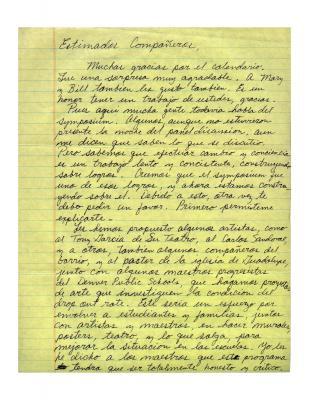 Estimados Compañeros,
Muchas gracias por el calendario.
Fue una sorpresa muy agradable. A Mary
y Bill tambien les gusto tambien. Es un
honor tener un trabajo de ustedes, gracias.
Pues aqui mucha gente todavia habla del
symposium. Algunos, aunque no estuvieron
presente la noche del panel discussion, aun
me dicen que saben lo que se discutio.
Pero sabemos que efectuar cambio y conciencia
es un trabajo lento y concistente, construyendo
sobre logros. Creemos que el symposium fue
uno de esos logros, y ahora estamos constru-
yendo sobre el. Debido a esto, otra vez te
debo pedir un favor. Primero permiteme
explicarte.
Les hemos propuesto algunos artistas, como
al Tony Garcia de Su Teatro, al Carlos
y a otros, tambien algunos compañeros del
barrio, y al pastor de la iglesia de Guadalupe,
junto con algunos maestros progresistas
del Denver Public Schools, que hagamos proyectos
de arte que la condicion del
drop out rate. Este seria un esfuerzo por
envolver a estudiantes y familias, juntos
con artistas y maestros, en hacer murales,
posters, teatro, y lo que salga, para
mejorar la situacion en las escuelas. Yo les
he dicho a los maestros que este programa
tendra que ser totalmente honesto y critico.